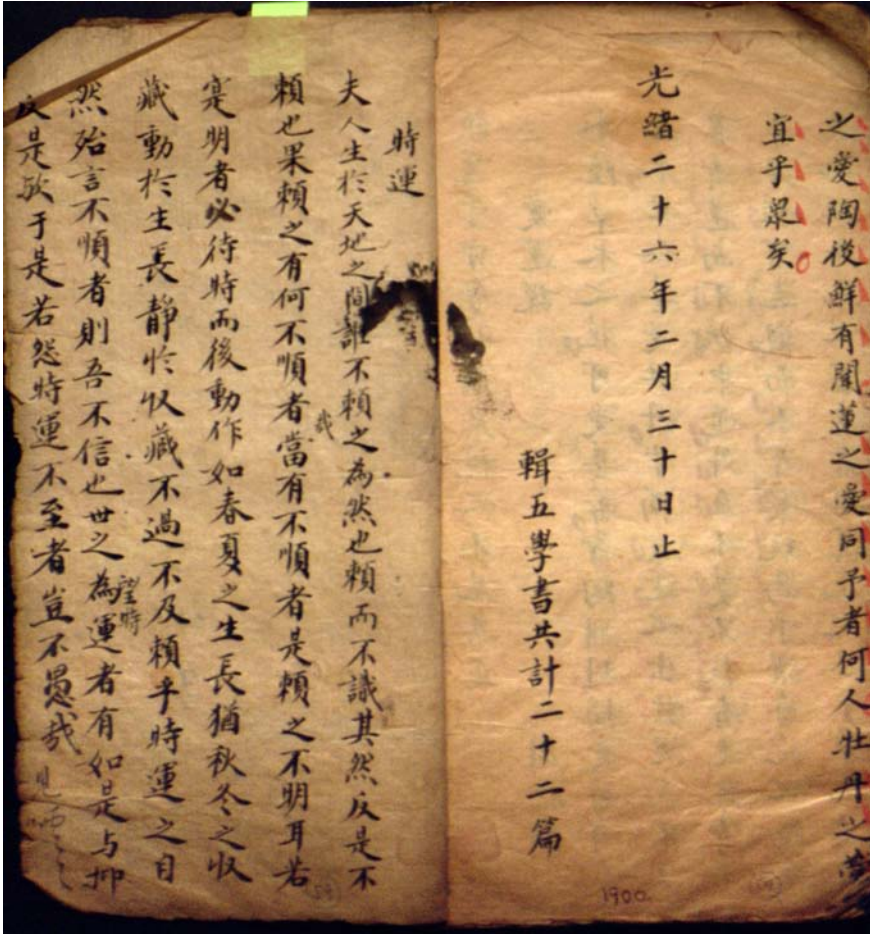 之愛陶後鮮有聞蓮之愛同予者何人牡丹之愛
宜乎衆矣
光緒二十六年二月三十日止
輯五學書共計二十二篇
1900
時運
夫人生於天地之間誰不賴之為然也賴而不識其然反是不
賴也果賴之有何不順者當有不順者是賴之不明耳若
哉
寔明者必待時而後動作如春夏之生長猶秋冬之收
藏動於生長靜於收藏不過不及賴乎時運之自
然殆言不順者則吾不信也世之為運者有如是与抑
望時
反是歟于是若怨時運不至者豈不愚哉